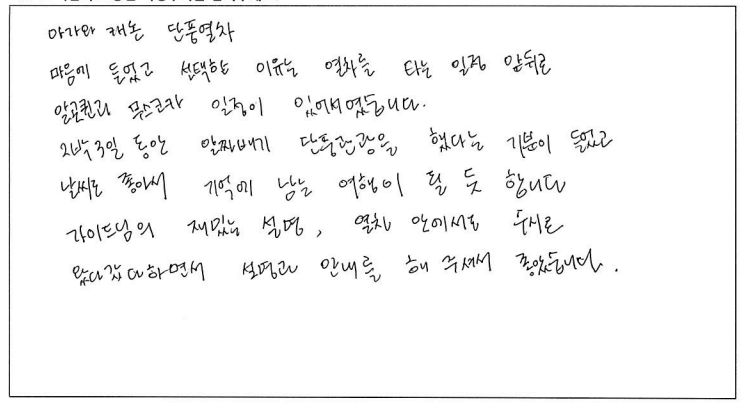 아가와 캐논 단풍열차
마음에 들었고 선택한 이유는 열차를 타는 일정 앞뒤로
알곤퀸과 무스코카 일정이 있어서였습니다.
2박3일 동안 알짜배기 단풍관광을 했다는 기분이 들었고
날씨도 좋아서 기억에 남는 여행이 될 듯 합니다
가이드님의 재밌는 설명, 열차 안에서도 수시로
왔다갔다하면서 설명과 안내를 해 주셔서 좋았습니다.